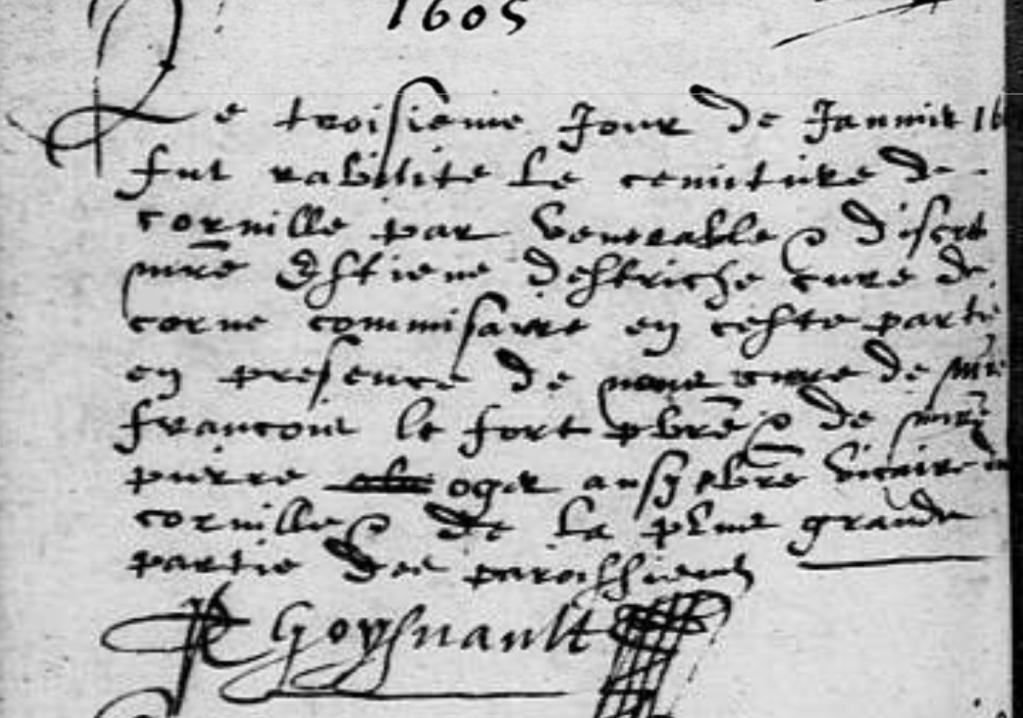 1605
Le troisieme Jour de Januier 16
fut rabilité le cemitiere de
cornille par venerable & discret
mre Estiene destriché curé de
corne commissaire en ceste partie
en presence de nous curé de mre
francois le fort pbre & de mre
pierre oger ausy pbre vicaire
cornille & de la plus grande
partie des paroissiens
Goysnault